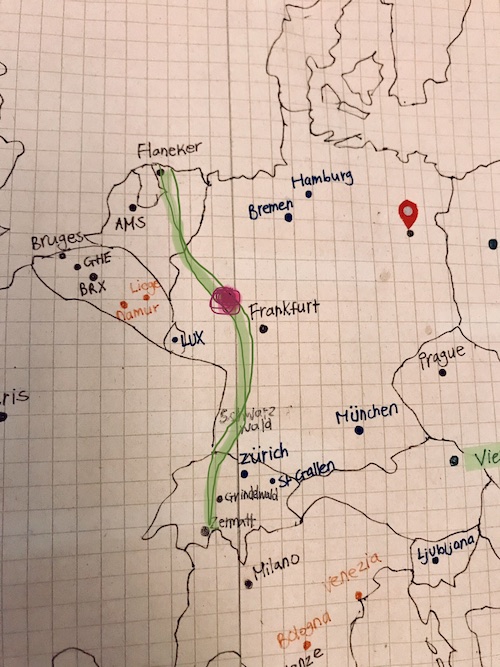 Flaneker
Hamburg
Bremen
AMS
Bruges
GHE
BRX
Liege
Namur
Frankfurt
LUX
Prague
ris
Schwarz
wald
München
Zürich
St Gallen
Vie
Grindelwald
Zermatt
Milano
Ljubljana
Venezia
Bologna